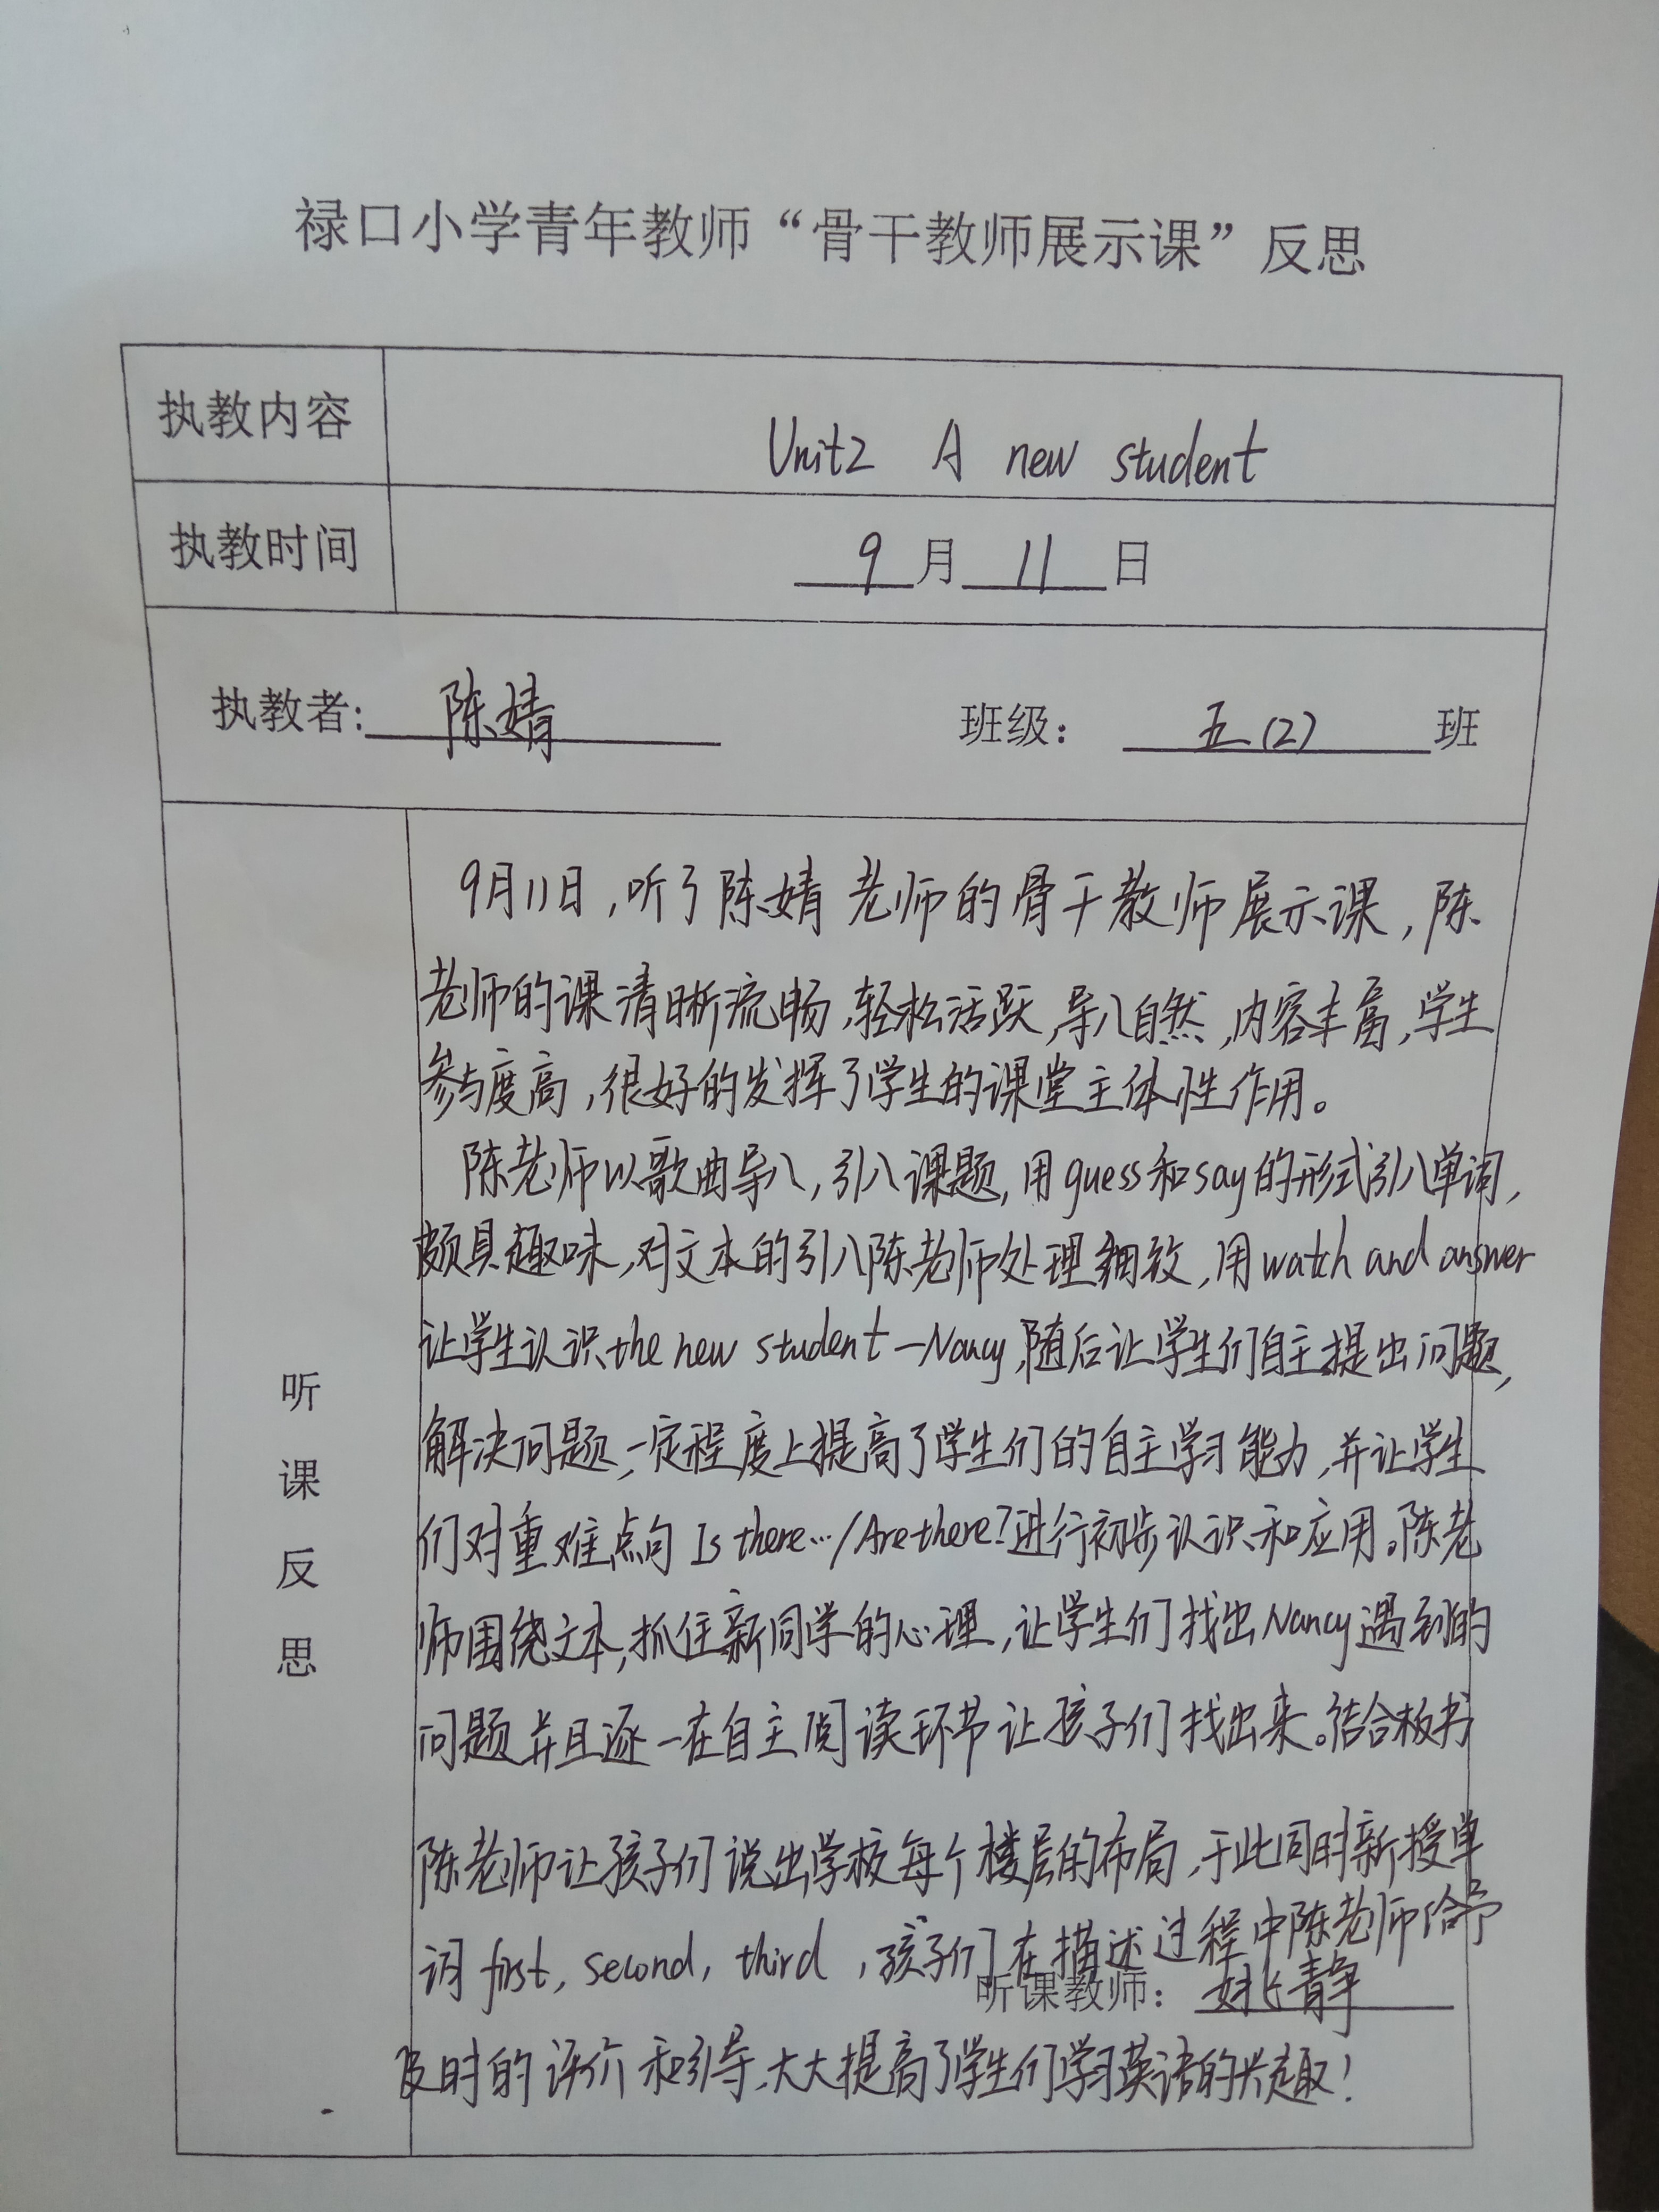 禄口小学青年教师“骨干教师展示课”反思
执教内容 Unit2 A new student
执教时间 9月11日
执教者: 陈婧 班级: 五(2)班
听课反思
9月11日,听了陈婧老师的骨干教师展示课,陈
老师的课清晰流畅,轻松活跃,导入自然,内容丰富,学生
参与度高,很好的发挥了学生的课堂主体性作用。
陈老师以歌曲导入,引入课题,用guess和say的形式引入单词,
颇具趣味,对文本的引入陈老师处理细致,用watch and answer
让学生认识the new student—Nancy,随后让学生们自主提出问题,
解决问题,一定程度上提高了学生们的自主学习能力,并让学生
们对重难点句Is there…/Are there?进行初步认识和应用。陈老
师围绕文本,抓住新同学的心理,让学生们找出Nancy遇到的
问题并且逐一在自主阅读环节让孩子们找出来。结合板书
陈老师让孩子们说出学校每个楼层的布局,于此同时新授单
词first, second, third,孩子们在描述过程中陈老师给予
听课教师: 姚静
及时的评价和引导,大大提高了学生们学习英语的兴趣!